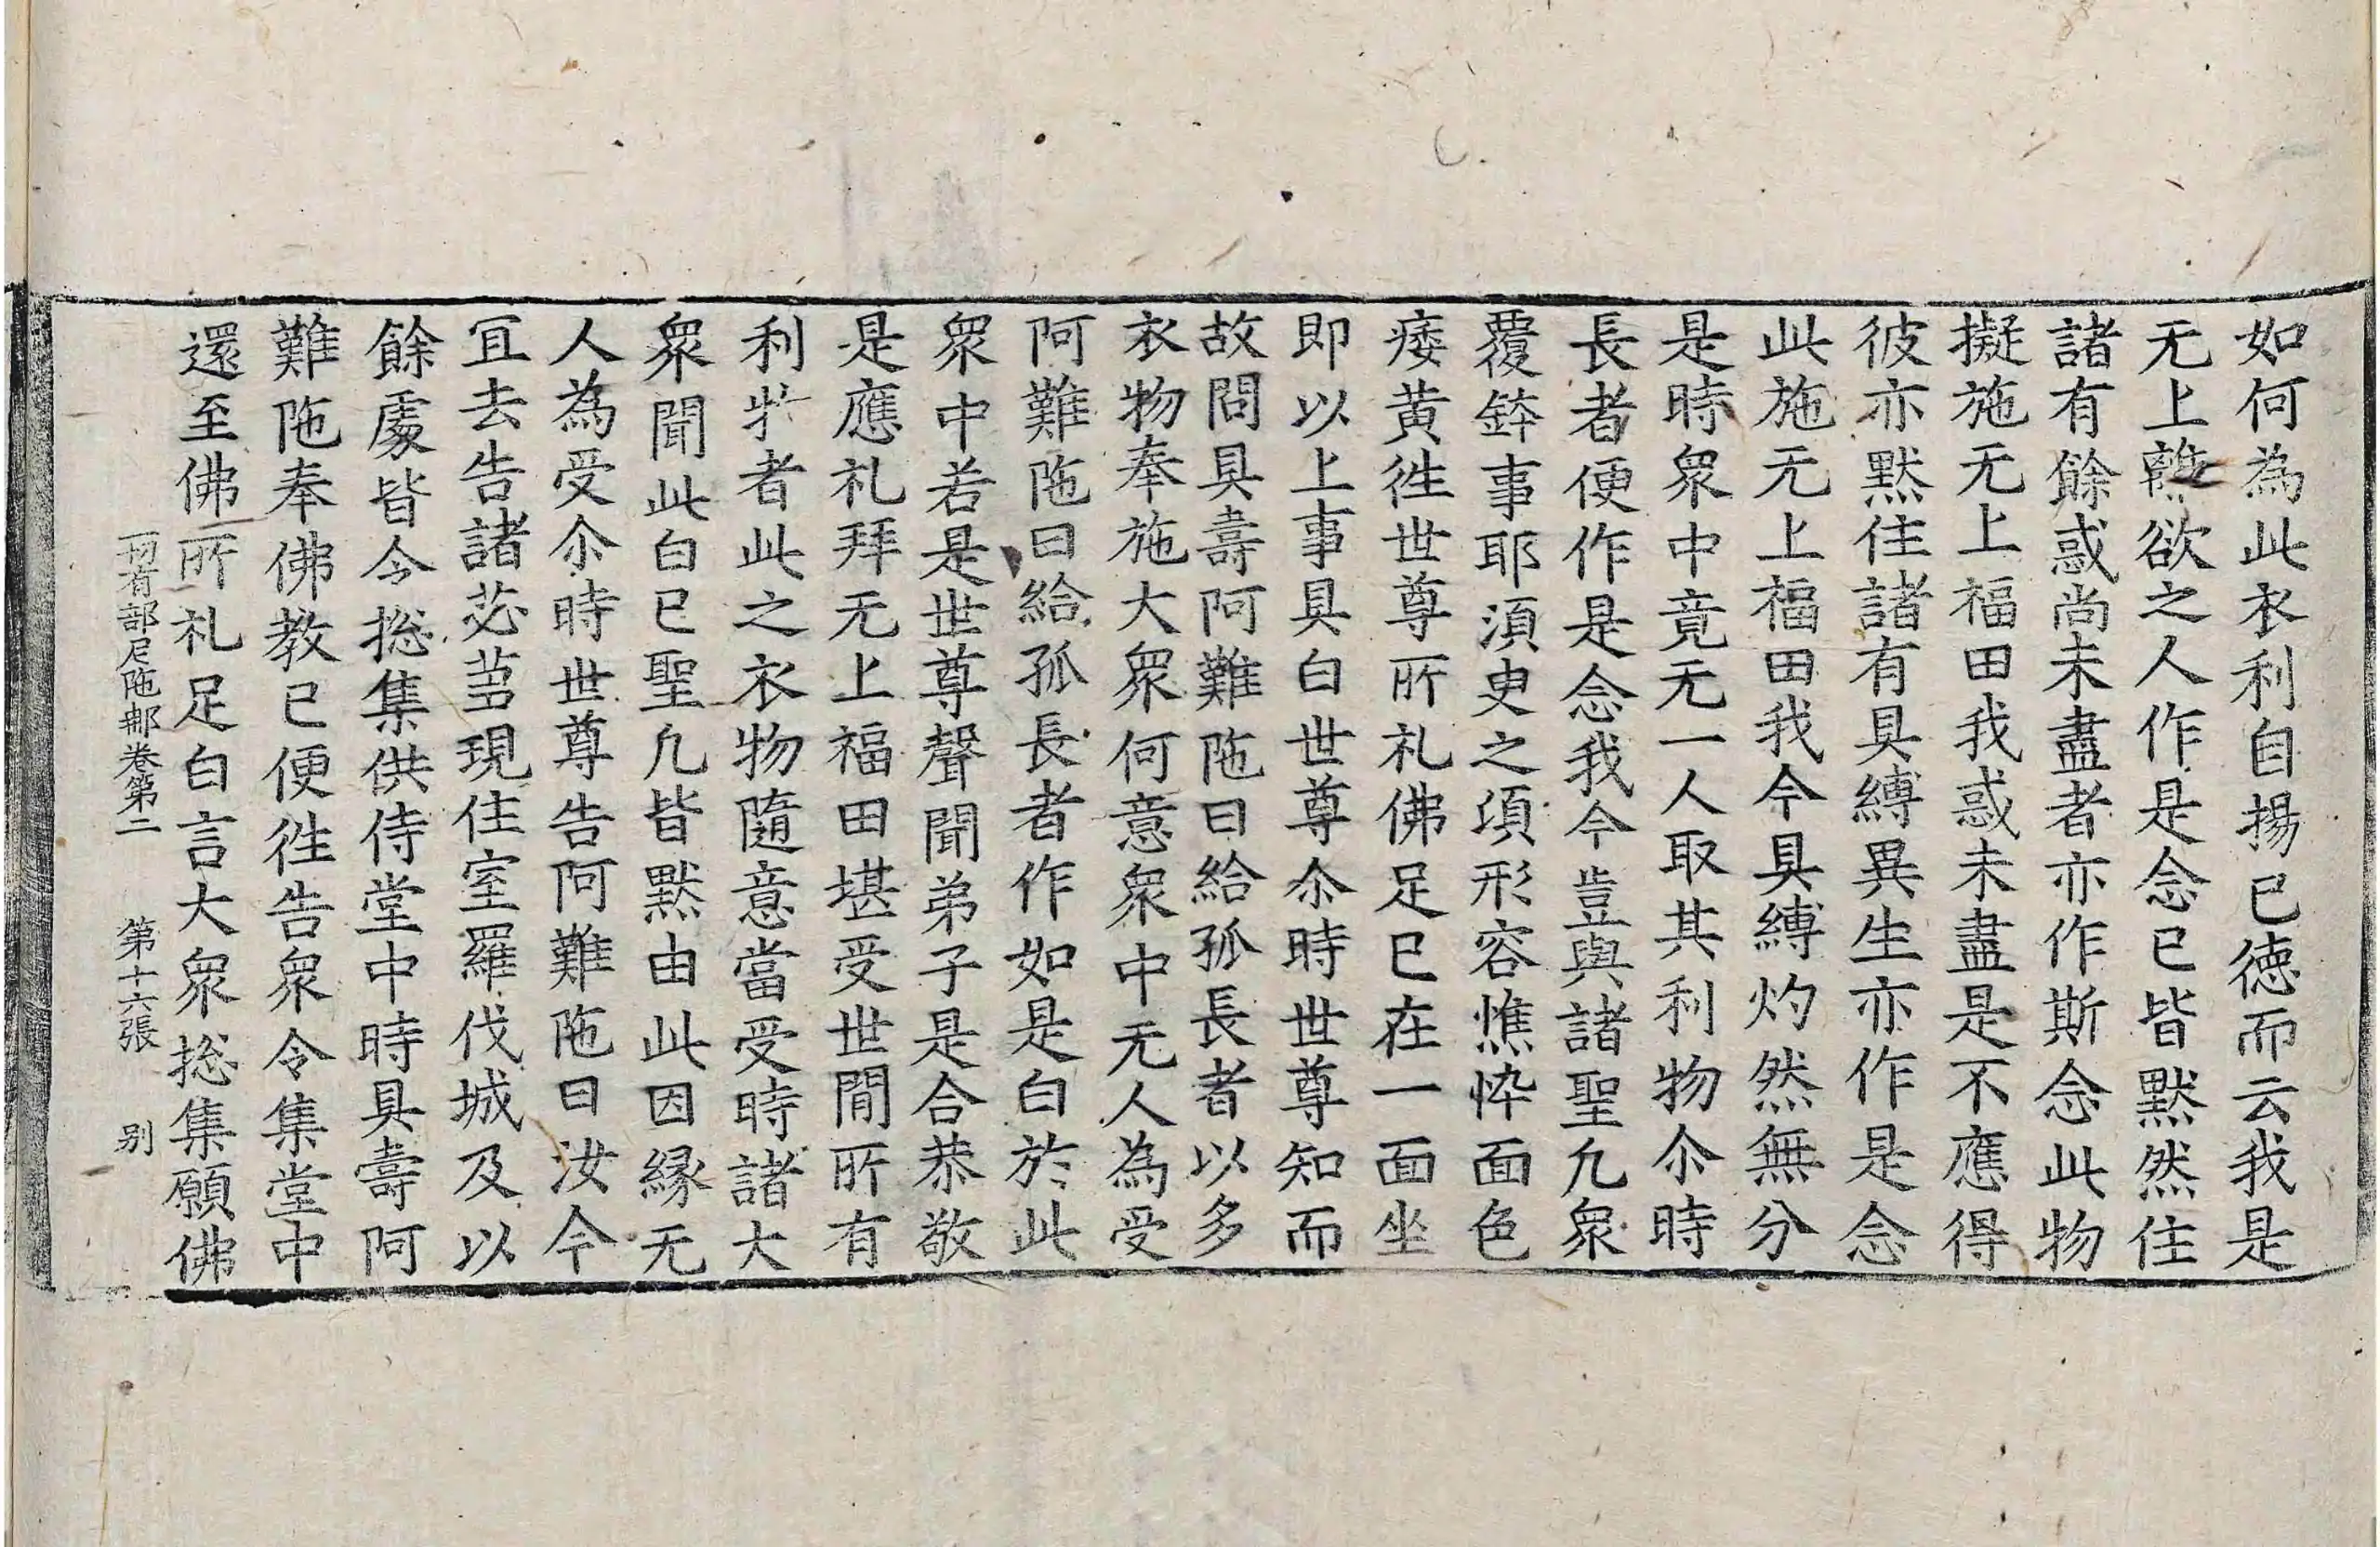 如何為此衣利自揚己德而云我是
无上離欲之人作是念已皆黙然住
諸有餘惑尚未盡者亦作斯念此物
擬施无上福田我惑未盡是不應得
彼亦黙住諸有具縛異生亦作是念
此施无上福田我今具縛灼然無分
是時衆中竟无一人取其利物尒時
長者便作是念我今豈與諸聖凢衆
覆鉢事耶須臾之頃形容憔悴面色
痿黄徃世尊所礼佛足已在一面坐
即以上事具白世尊尒時世尊知而
故問具壽阿難陁曰給孤長者以多
衣物奉施大衆何意衆中无人為受
阿難陁曰給孤長者作如是白於此
衆中若是世尊聲聞弟子是合恭敬
是應礼拜无上福田堪受世間所有
利者此之衣物隨意當受時諸大
衆聞此白已聖凢皆黙由此因縁无
人為受尒時世尊告阿難陁曰汝今
冝去告諸苾芻現住室羅伐城及以
餘處皆令捴集供侍堂中時具壽阿
難陁奉佛教已便徃告衆令集堂中
還至佛所礼足白言大衆捴集願佛
一切有部尼陁那卷第二 第十六張 别